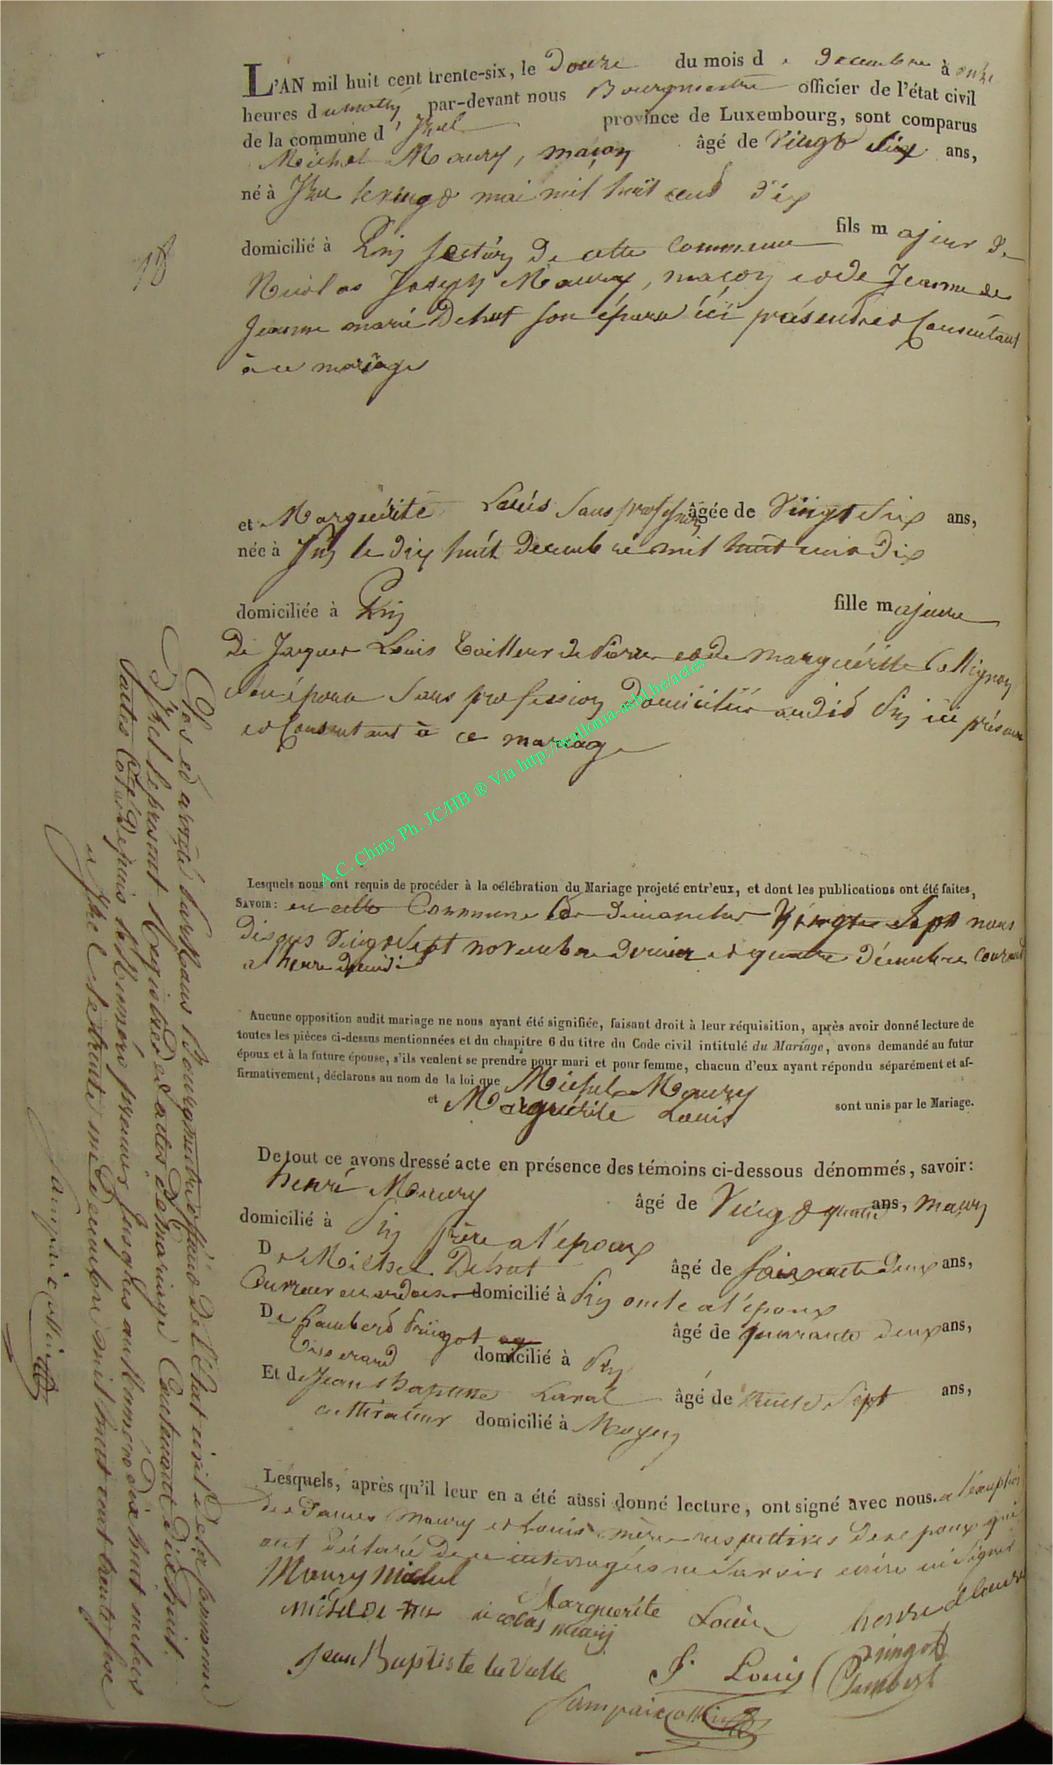 L'AN mil huit cent trente-six, le Douze du mois de Decembre à onze
heures du matin par-devant nous Bourgmestre officier de l'état civil
de la commune d'Izel province de Luxembourg, sont comparus
Michel Maury, maçon âgé de Vingt Six ans,
né à Izel le vingt mai mil huit cent dix
domicilié à Pin section de cette Commune fils majeur de
Nicolas Joseph Maury, maçon et de Jeanne de
Jeanne marie Dehut son épouse ici présents et Consentant
à ce mariage
18
et Marguérite Louis Sans profession âgée de Vingt Six ans,
née à Pin le dix huit Decembre mil huit cent Dix
domiciliée à Pin fille majeure
de Jacques Louis Tailleur de Pierre et de Marguérite Collignon
son épouse Sans profession Domiciliés audit Pin ici présents
et Consentant à ce mariage
A.C. Chiny Ph. JC/HB ® Via http://wallonia-asbl.be/actes
Lesquels nous ont requis de procéder à la célébration du Mariage projeté entr'eux, et dont les publications ont été faites,
SAVOIR: en cette Commune les Dimanches Vingt Sept nous
Disons Vingt Sept novembre Dernier et quatre Décembre courant
à l'heure de midi
Aucune opposition audit mariage ne nous ayant été signifiée, faisant droit à leur réquisition, après avoir donné lecture de
toutes les pièces ci-dessus mentionnées et du chapitre 6 du titre du Code civil intitulé du Mariage, avons demandé au futur
époux et à la future épouse, s'ils veulent se prendre pour mari et pour femme, chacun d'eux ayant répondu séparément et af-
firmativement, déclarons au nom de la loi que Michel Maury
et Marguérite Louis sont unis par le Mariage.
De tout ce avons dressé acte en présence des témoins ci-dessous dénommés, savoir:
henri Maury âgé de Vingt quatre ans, maçon
domicilié à Pin frère à l'époux
De Michel Dehut âgé de soixante Deux ans,
domicilié à Pin oncle à l'époux
De Lambert Pringot âgé de quarante deux ans,
Tisserand domicilié à Pin
Et de Jean Baptiste Laval âgé de trente Sept ans,
cultivateur domicilié à Moyen
Lesquels, après qu'il leur en a été aussi donné lecture, ont signé avec nous. à l'exception
des Dames Maury et Louis mères respectives des époux qui
ont déclaré de ce interrogées ne Savoir écrire ni Signer
Maury Michel
Michel De hut nicolas maury Marguerite Louis henri Maury
Jean Baptiste la Valle J. Louis Pringot Lambert
Clos et arrêté par Nous Bourgmestre officier de l'état civil de la Commune
D'Izel le present Registre d'actes de mariage Contenant Dix huit
actes Coté Depuis le Numéro premier jusqu'au Numéro Dix huit inclus
à Izel le trente un Decembre mil huit cent trente six